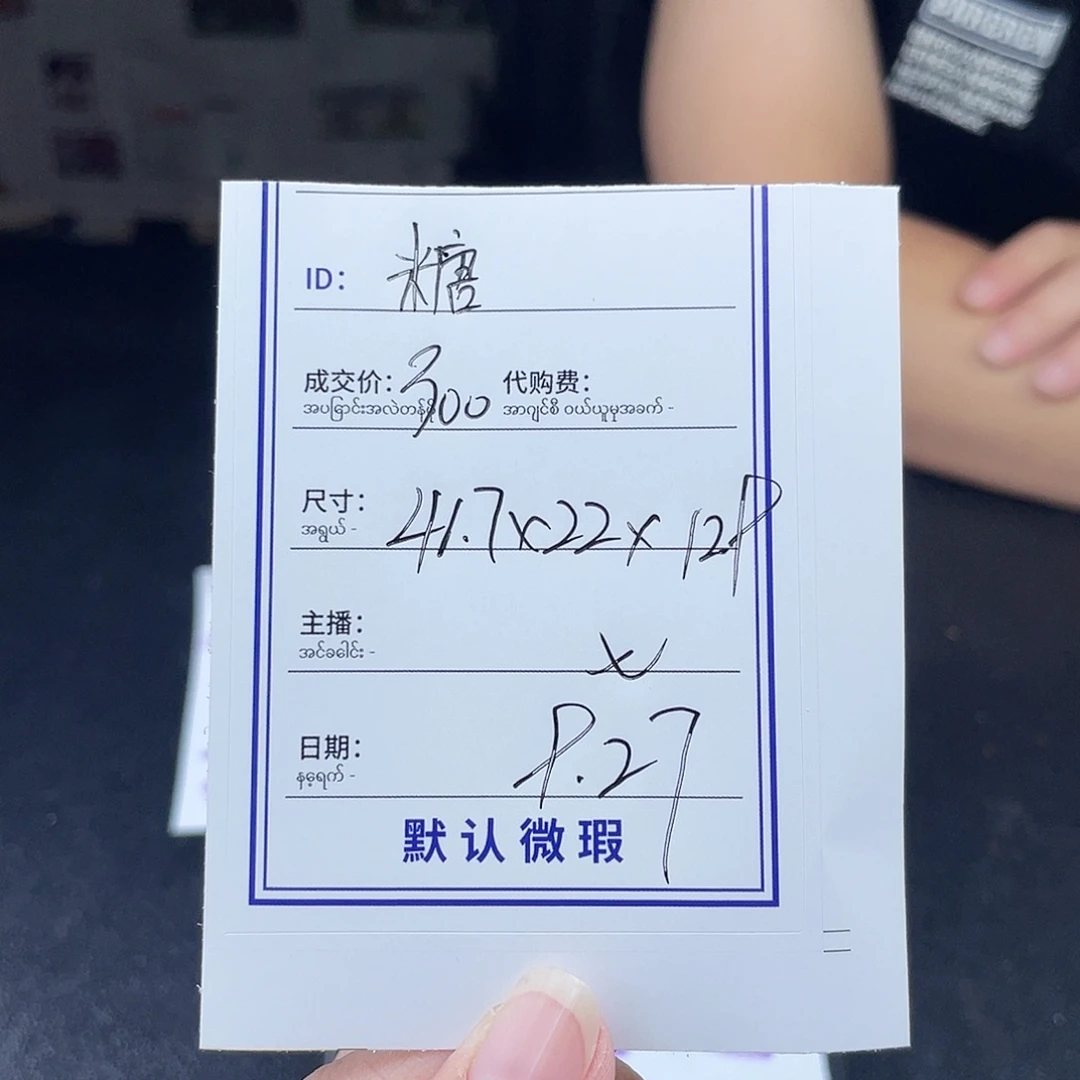 ID： 糖
成交价：300 代购费：
အပြောင်းအလဲတန်ဖိုး အာဂျင်စီ ဝယ်ယူမှုအခက် -
尺寸： 41.7x22x12.9
အရွယ် -
主播： x
အင်ခေါင်း -
日期： 9.27
နေ့ရက် -
默认微瑕